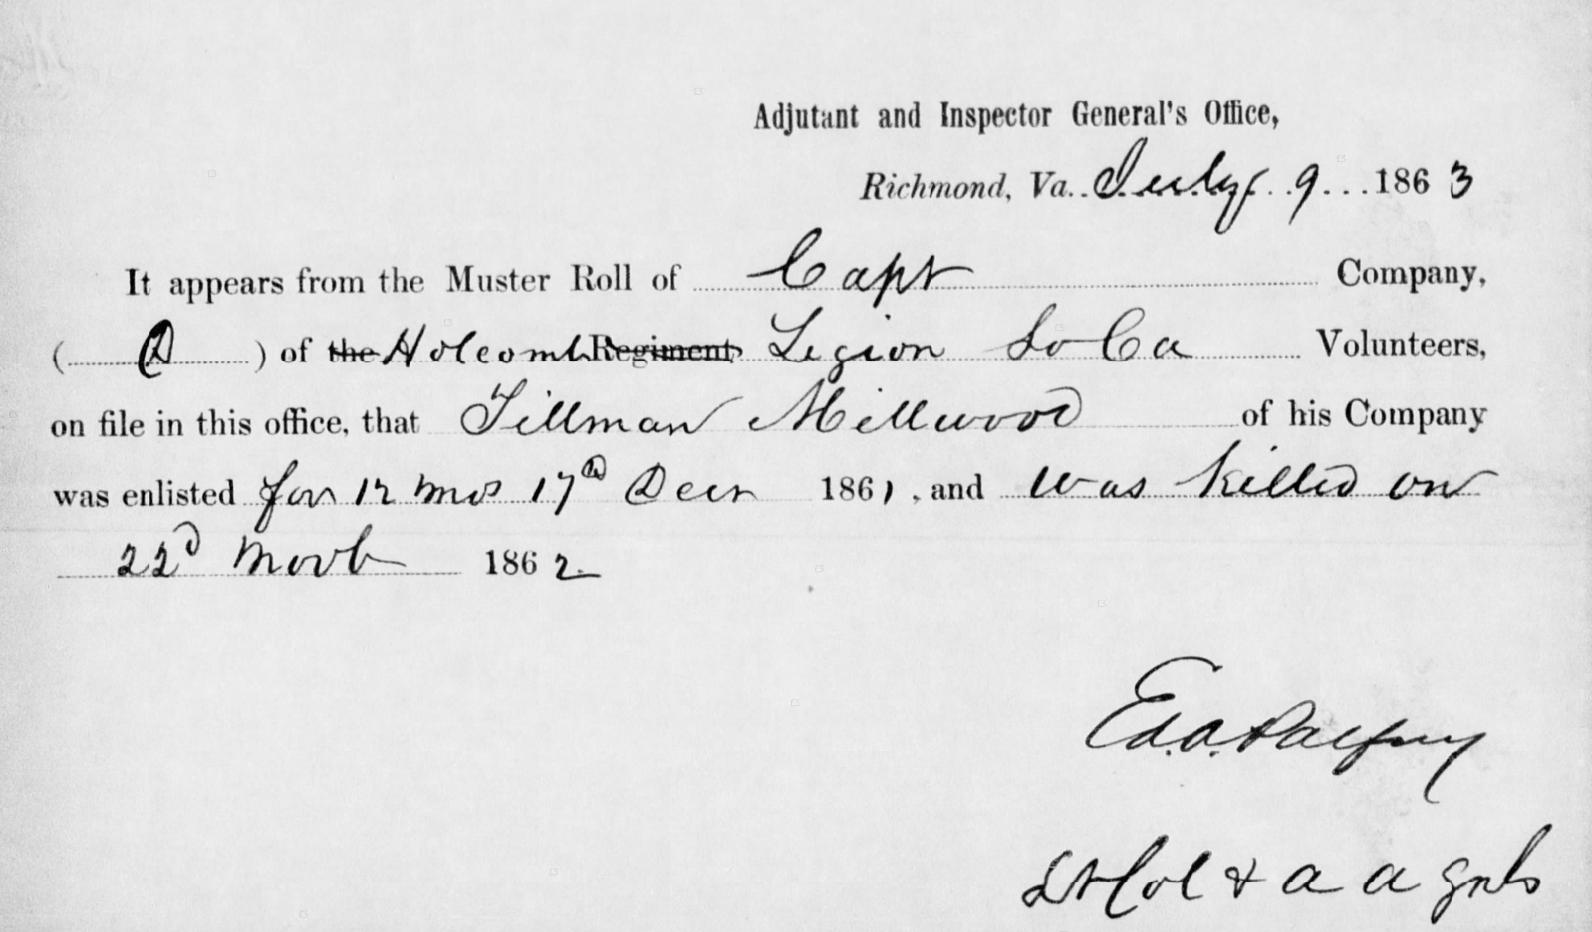 Adjutant and Inspector General's Office,
Richmond, Va. July 9 1863
It appears from the Muster Roll of Capt Company,
( D ) of the Holcomb Regiment, Legion So Ca Volunteers,
on file in this office, that Tillman Millwood of his Company
was enlisted for 12 mos 17th Decr 1861, and was killed on
22d 1862
Ed. A. Palfrey
Lt Col & A A Genl